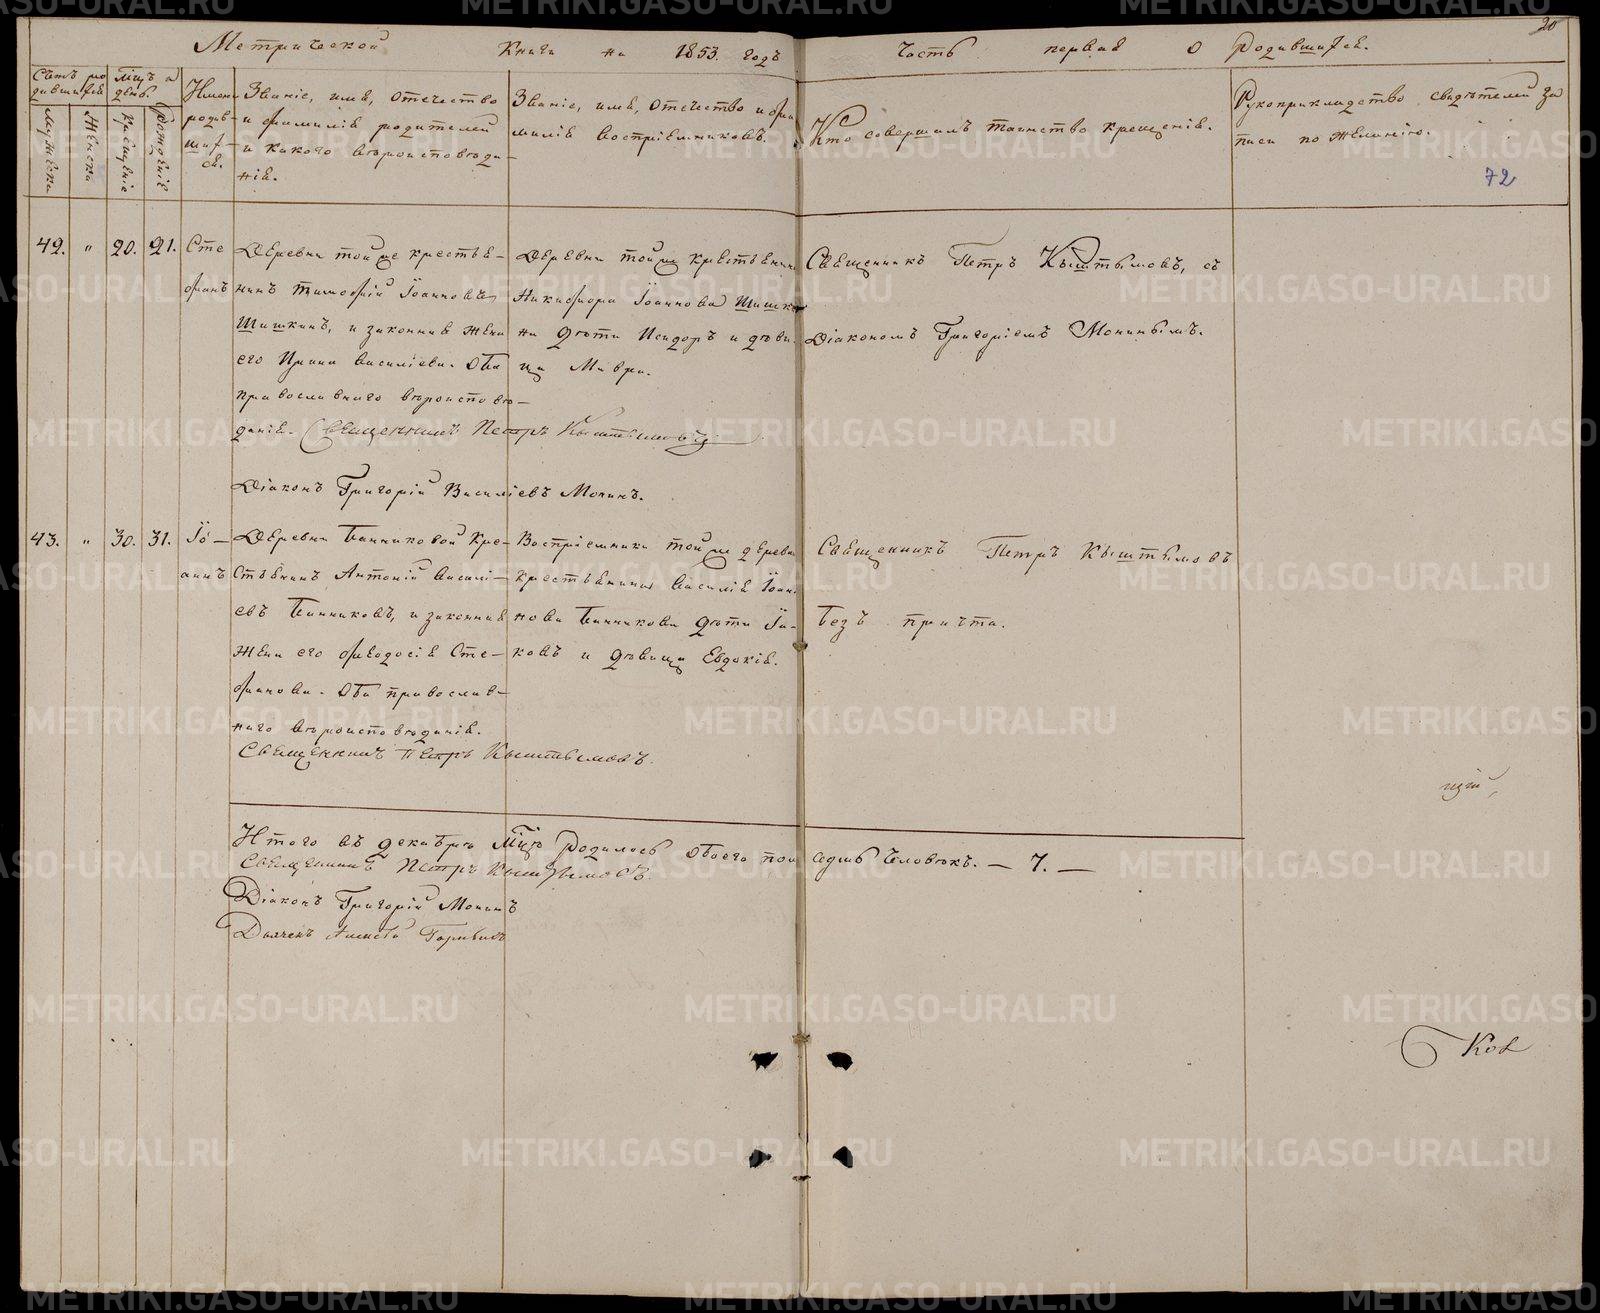 Метрической Книги на 1853. годъ Часть первая о Родившихся.
20
Счетъ родившихся
Мужеска
Женска
Мѣсяцъ и день.
Рожденіе
Имена родившихся.
Званіе, имя, Отечество
и фамилія родителей
и какого вѣроисповѣда-
нія.
Званіе, имя, Отечество и фа
милія Воспріемниковъ.
Кто совершалъ таинство крещенія.
Рукоприкладство свидѣтелей за
писи по желанію.
72
42. " 20. 21.
Сте
фанъ
Деревни той же крестья-
нинъ Тимофій Іоанновъ
Шишкинъ, и законная жена
его Ирина Василіева. Оба
православнаго вѣроисповѣ-
данія. Священникъ Петръ Кыштымовъ
Діаконъ Григорій Василіевъ Монинъ.
Деревни той же крестьянина
Никифора Іоаннова Шишки
на дѣти Исидоръ и дѣви-
ца Мавра.
Священникъ Петръ Кыштымовъ, съ
Діакономъ Григоріемъ Монинымъ.
43. " 30. 31.
Іо-
аннъ
Деревни Банниковой Кре-
стьянинъ Антоній Василі-
евъ Банниковъ, и законная
жена его Феодосія Сте-
фанова. Оба православ-
наго вѣроисповѣданія.
Священникъ Петръ Кыштымовъ.
Воспріемники той же деревни
крестьянина Василія Іоан
нова Банникова дѣти Іа-
ковъ и дѣвица Евдокія.
Священникъ Петръ Кыштымовъ
Безъ причта.
Итого въ декабрѣ мцѣ Родилось обоего пола седмь человѣкъ. — 7. —
Священникъ Петръ Кыштымовъ
Діаконъ Григорій Монинъ
Дьячекъ
Ков
METRIKI.GASO-URAL.RU